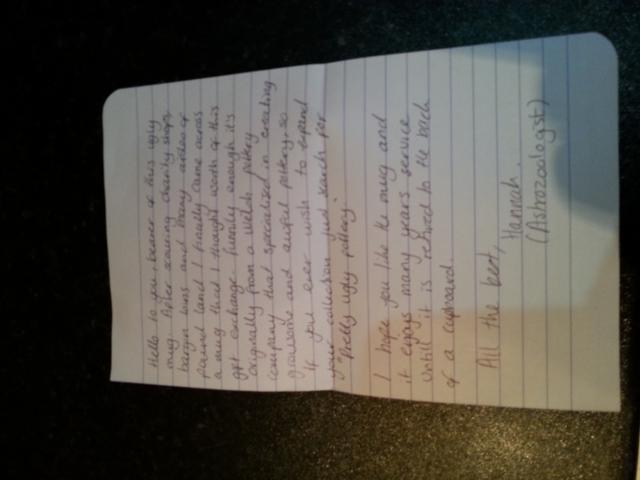 Hello to you, bearer of this ugly
mug. After scouring charity shops,
bargin bins and many aisles of
pound land I finally came across
a mug that I thought worth of this
gift exchange. Funnily enough it's
originally from a Welsh pottery
company that specialized in creating
gruesome and awful pottery, so
if you ever wish to expand
your collection just search for
"Pretty ugly pottery"
I hope you like the mug and
it enjoys many years service
until it is retired to the back
of a cupboard.
All the best,
Hannah.
(Astrozoologist)